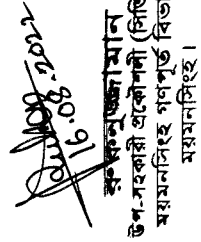 16.08.2022
রুকনুজ্জামান
উপ-সহকারী প্রকৌশলী (সিভি
ময়মনসিংহ গণপূর্ত বিভা
ময়মনসিংহ।